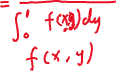 = ∫₀¹ f(x,y)dy
f(x,y)